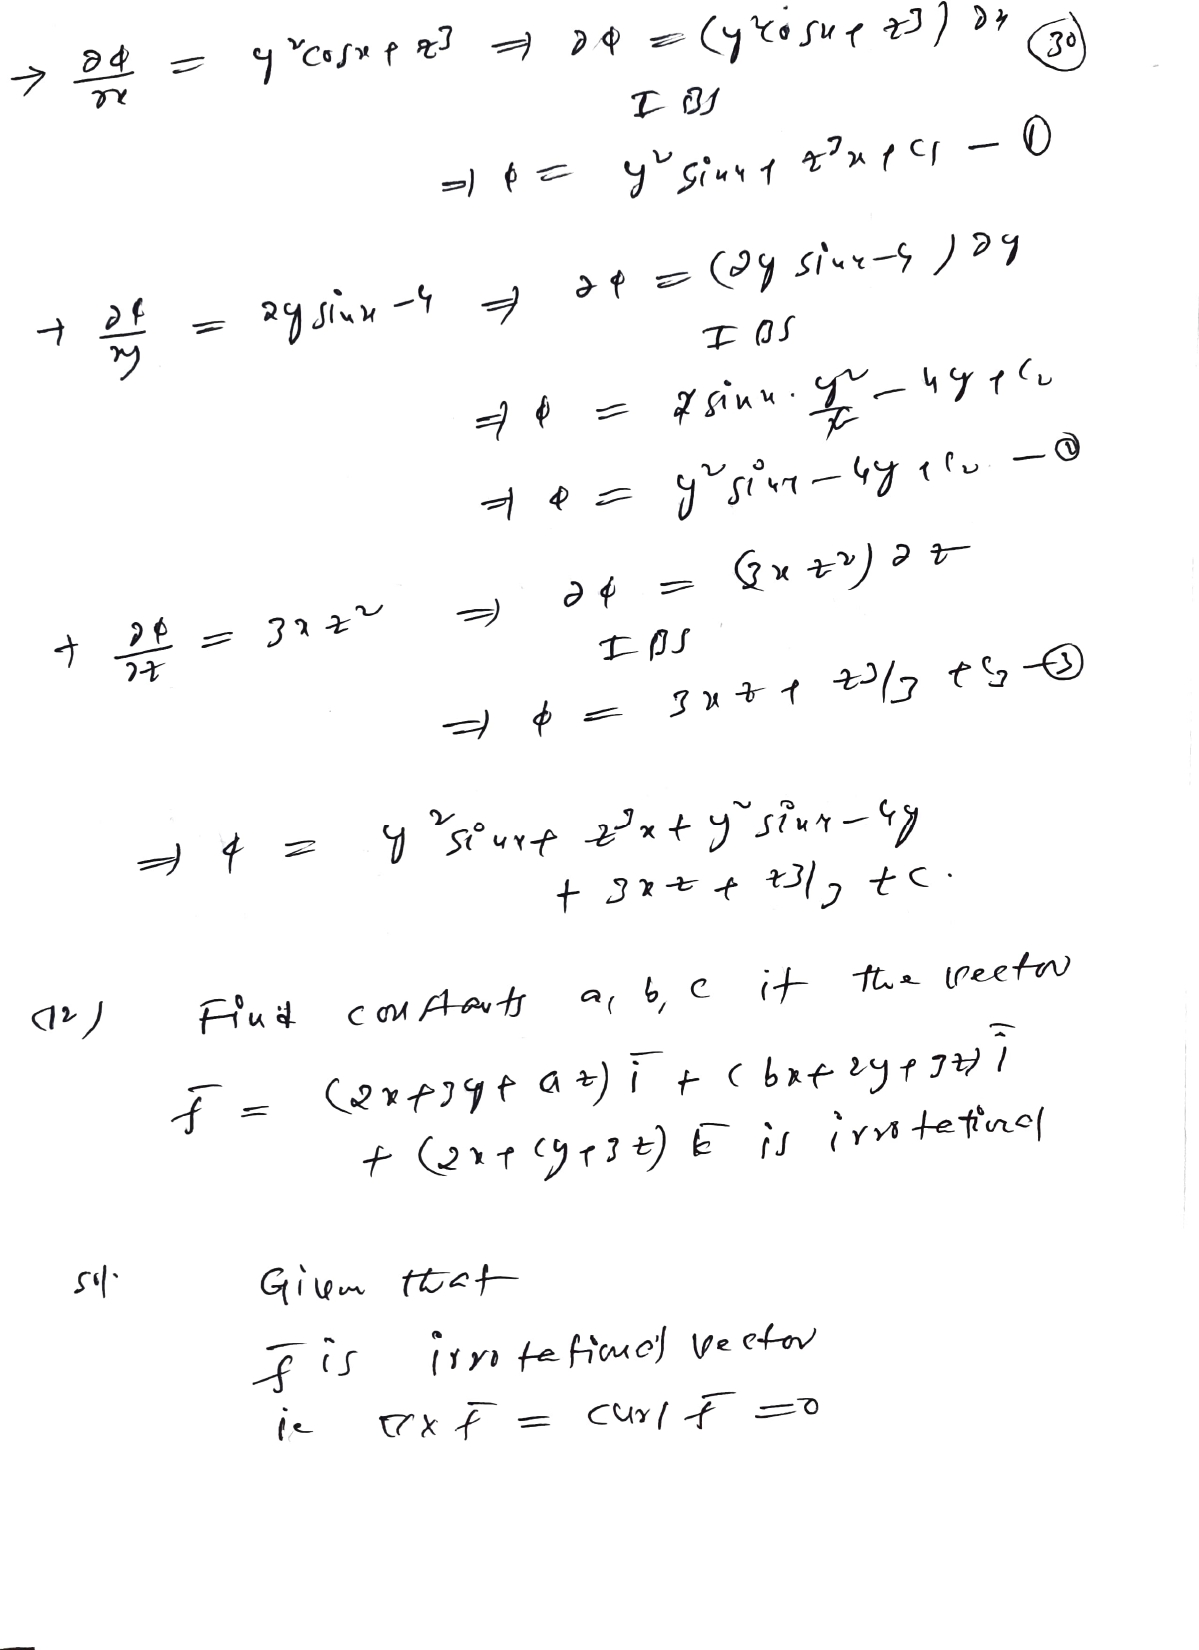 → ∂φ/∂x = y²cosx + z³ ⇒ ∂φ = (y²cosx + z³) ∂x (30)
I BS
⇒ φ = y² sinx + z³x + c₁ — ①
→ ∂φ/∂y = 2y sinx - 4 ⇒ ∂φ = (2y sinx - 4) ∂y
I BS
⇒ φ = 2 sinx . y²/2 - 4y + c₂
⇒ φ = y² sinx - 4y + c₂ — ②
→ ∂φ/∂z = 3xz² ⇒ ∂φ = (3xz²) ∂z
I BS
⇒ φ = 3xz + z³/3 + c₃ — ③
⇒ φ = y² sinx + z³x + y² sinx - 4y
+ 3xz + z³/3 + c.
(12) Find constants a, b, c if the vector
f̄ = (2x+3y+az) ī + (bx+2y+3z) j̄
+ (2x+cy+3z) k̄ is irrotational
Sol. Given that
f̄ is irrotational vector
ie ∇×f̄ = curl f̄ = 0